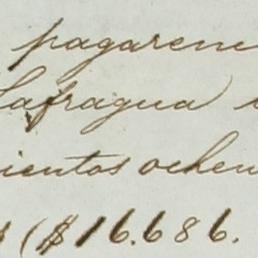 pagarene
Lafragua
ientos ochen
($16.686.